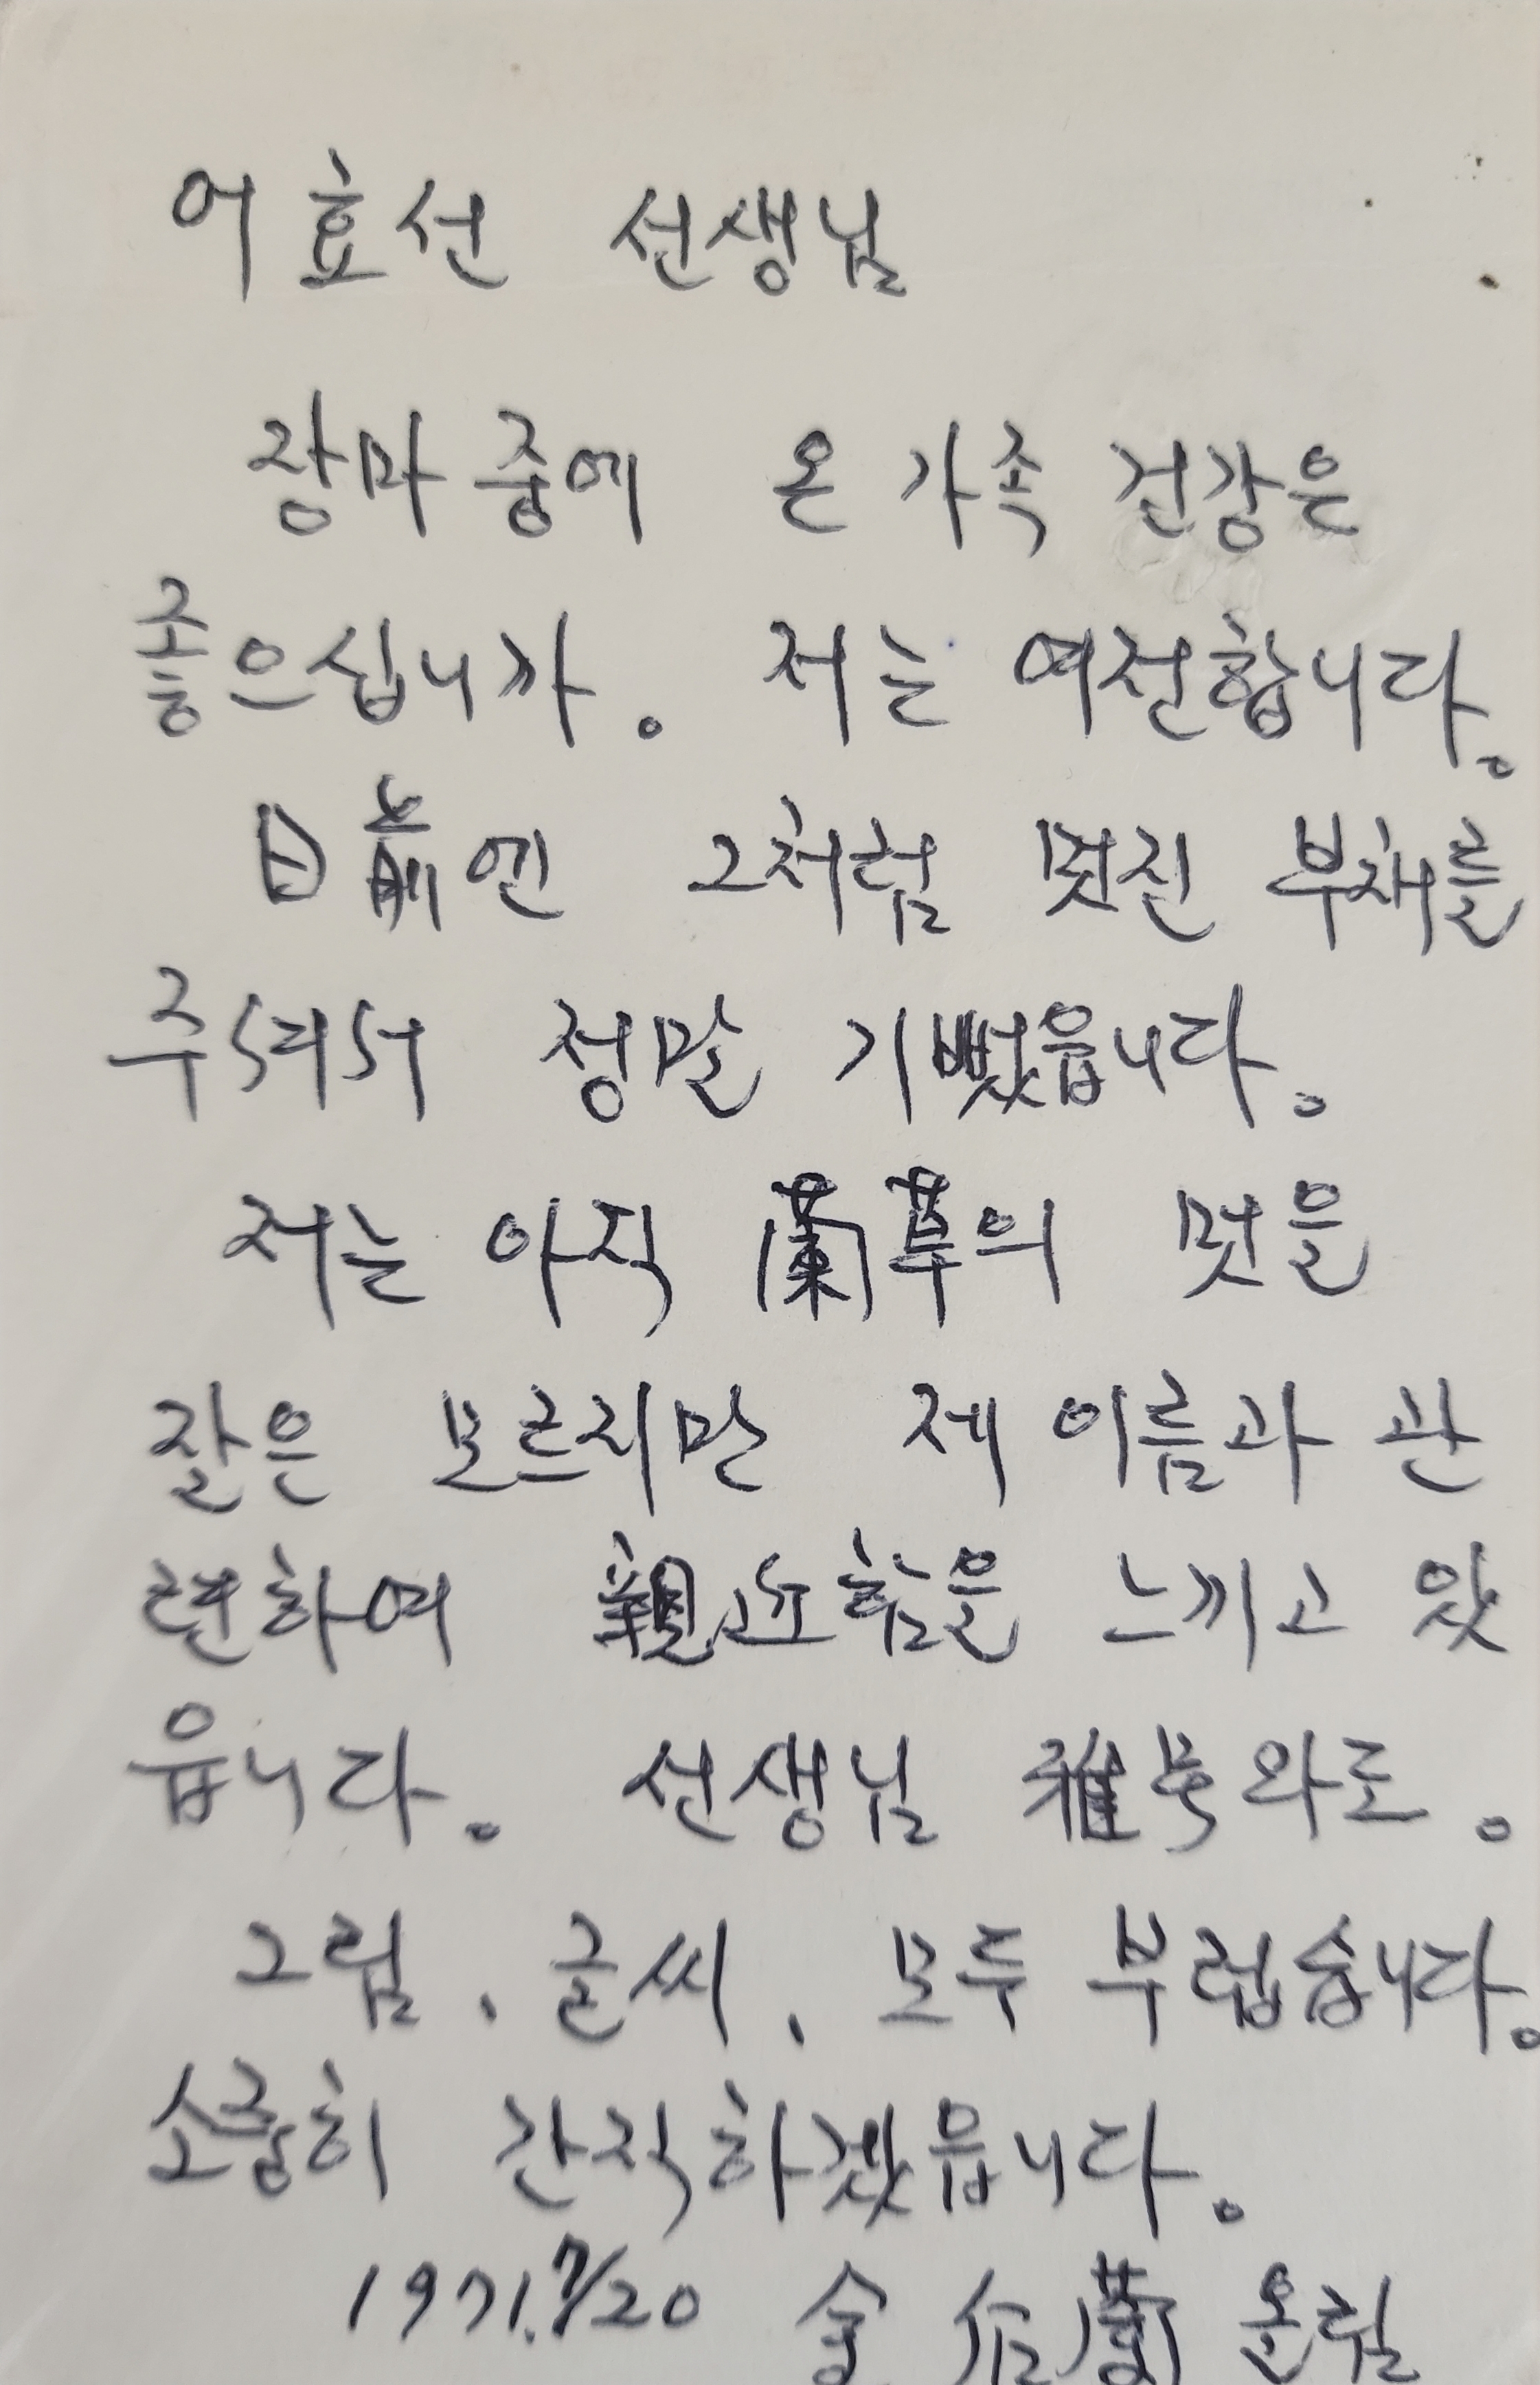 어효선 선생님
장마중에 온 가족 건강은
좋으십니까. 저는 여전합니다.
日前엔 그처럼 멋진 부채를
주셔서 정말 기뻤읍니다.
저는 아직 蘭草의 멋을
잘은 모르지만 제 이름과 관
련하여 親近함을 느끼고 있
읍니다. 선생님 雅号와도.
그림, 글씨, 모두 부럽습니다.
소중히 간직하겠읍니다.
1971. 7/20 金 蘭 올림